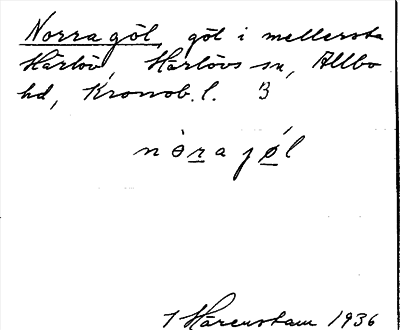 Norra göl, göl i mellersta
Härlöv, Härlövs sn, Allbo
hd, Kronob. l. B
nòra jǿl
1 Härenstam 1936